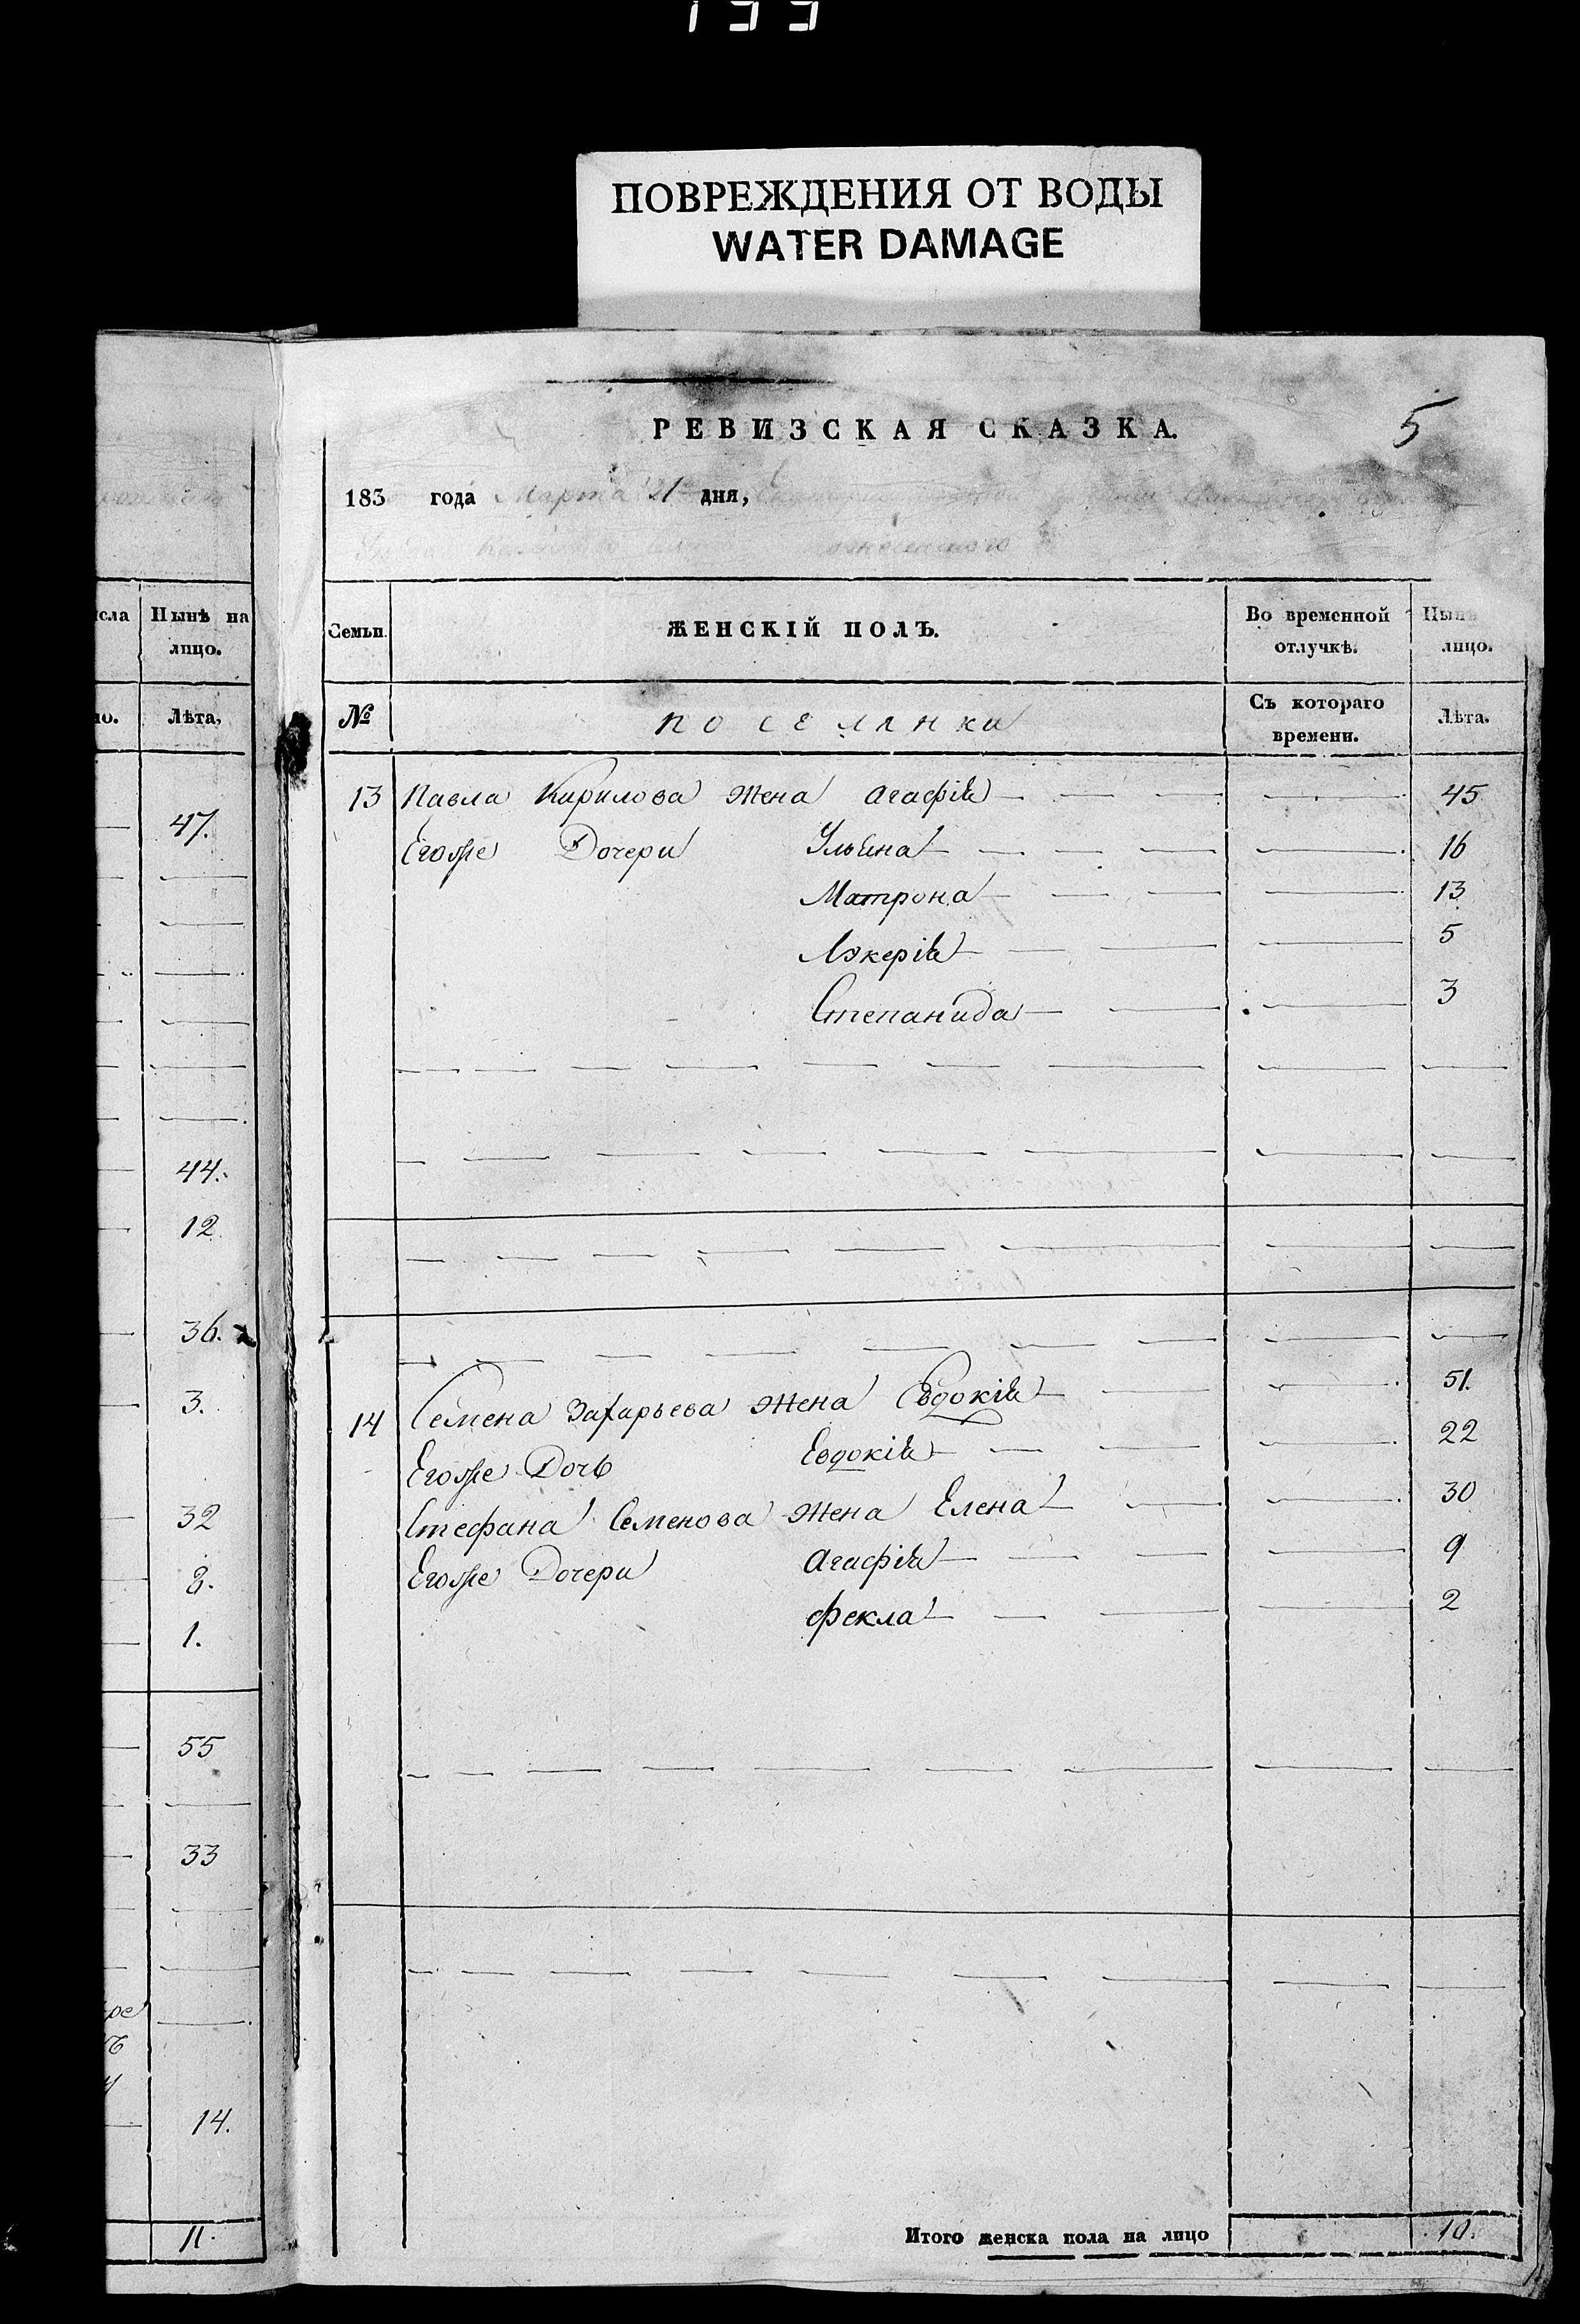 ПОВРЕЖДЕНИЯ ОТ ВОДЫ
WATER DAMAGE
РЕВИЗСКАЯ СКАЗКА.
5
183 года Марта 21 дня,
Нынѣ на лицо.
Лѣта,
47.
44.
12
36.
3.
32
8.
1.
55
33
14.
11.
Семьи. ЖЕНСКІЙ ПОЛЪ. Во временной отлучкѣ. Нынѣ лицо.
№ поселянки Съ котораго времени. Лѣта.
13 Павла Кирилова жена Агафія 45
Егоже Дочери Ульяна 16
Матрона 13
Лукерія 5
Степанида 3
14 Семена Захарьева жена Евдокія 51.
Егоже Дочь Евдокія 22
Стефана Семенова жена Елена 30
Егоже Дочери Агафія 9
Фекла 2
Итого женска пола на лицо 10.